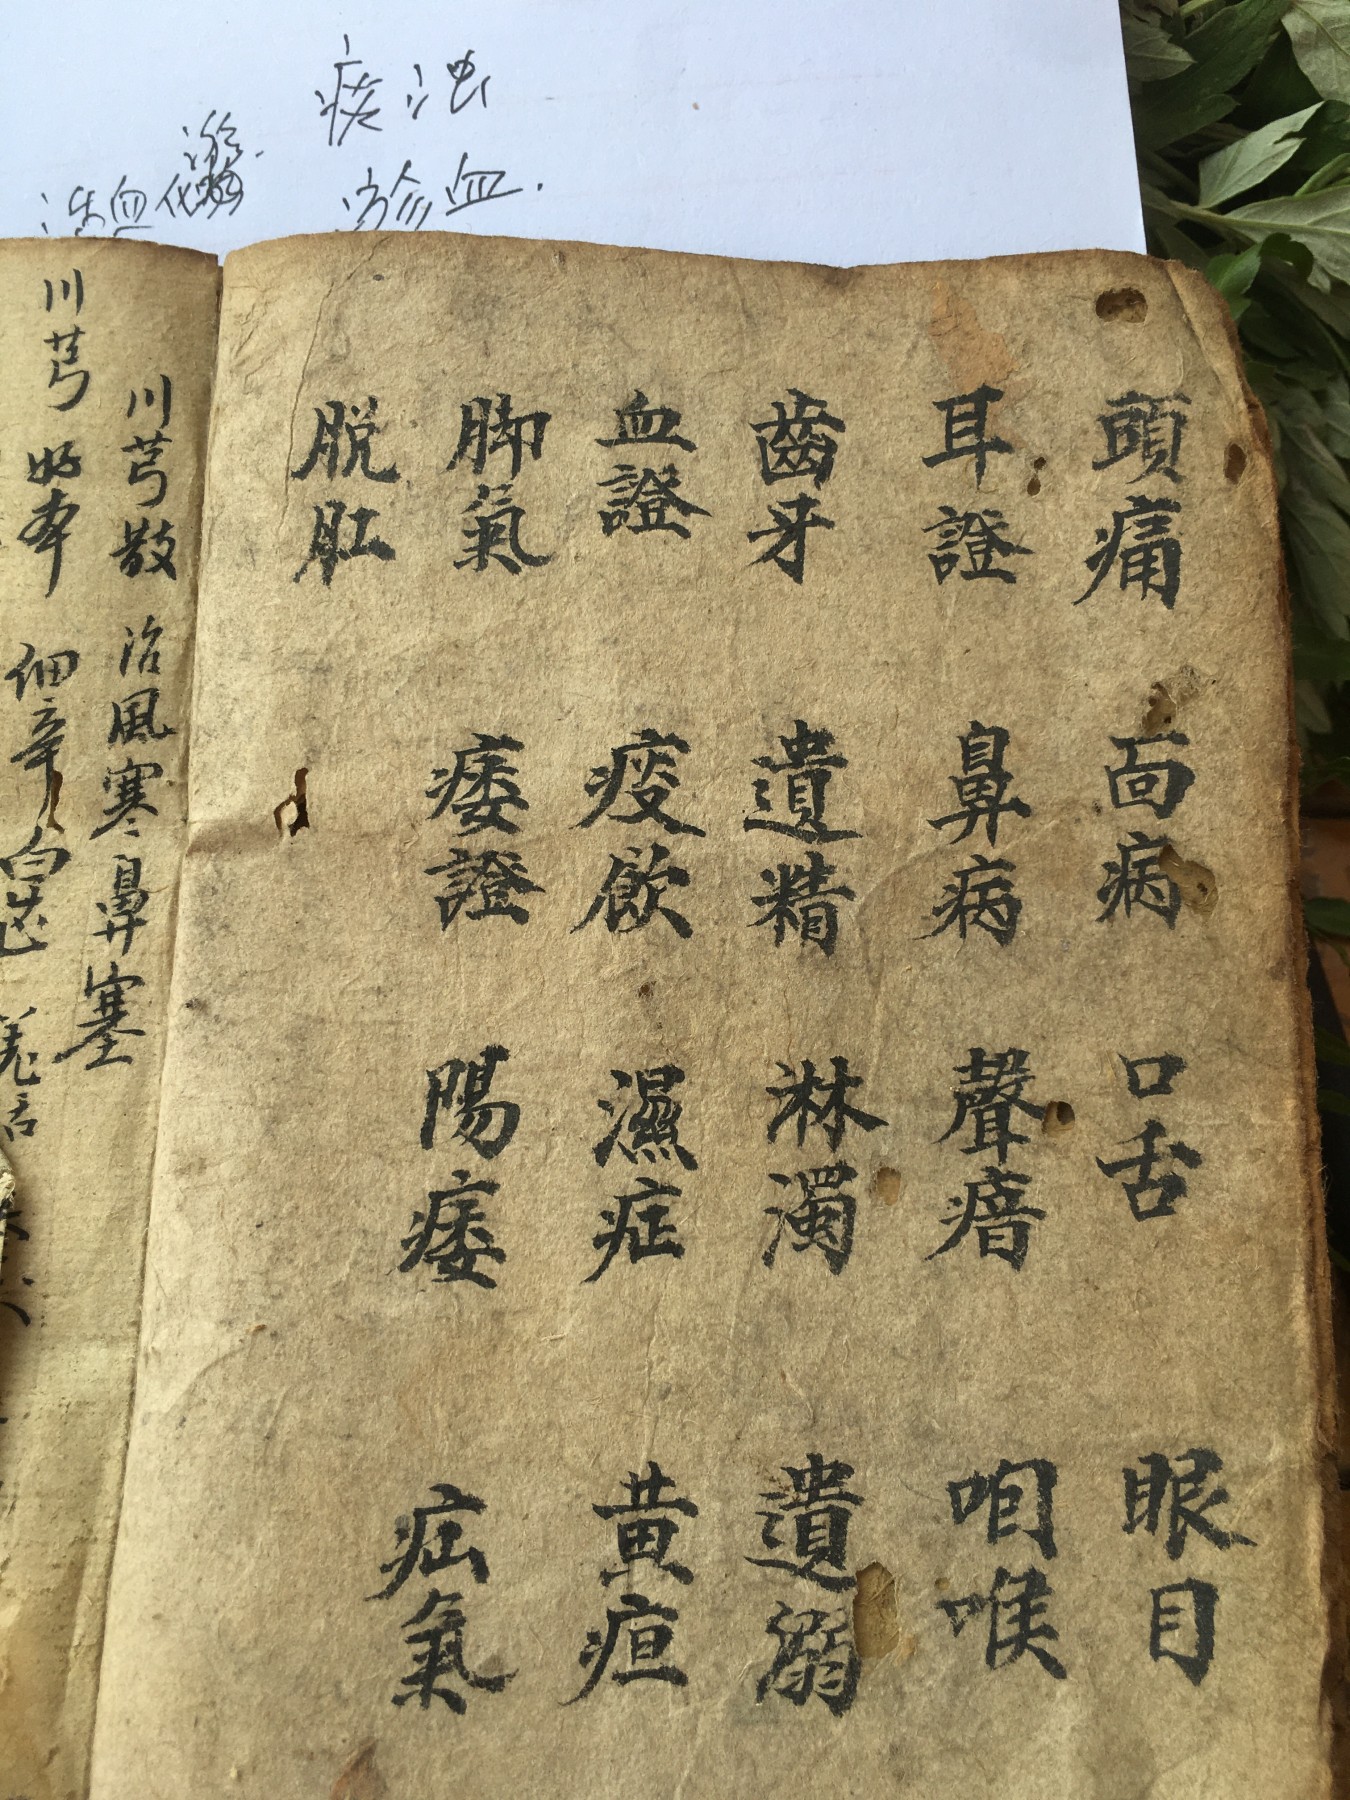 疾 浊
瘀血.
活血化
頭痛 面病 口舌 眼目
耳證 鼻病 聲瘖 咽喉
齒牙 遺精 淋濁 遺溺
血證 痰飲 濕症 黃疸
脚氣 痿證 陽痿 疝氣
脱肛
川芎散 治風寒鼻塞
川芎 细辛 白芷 羌活